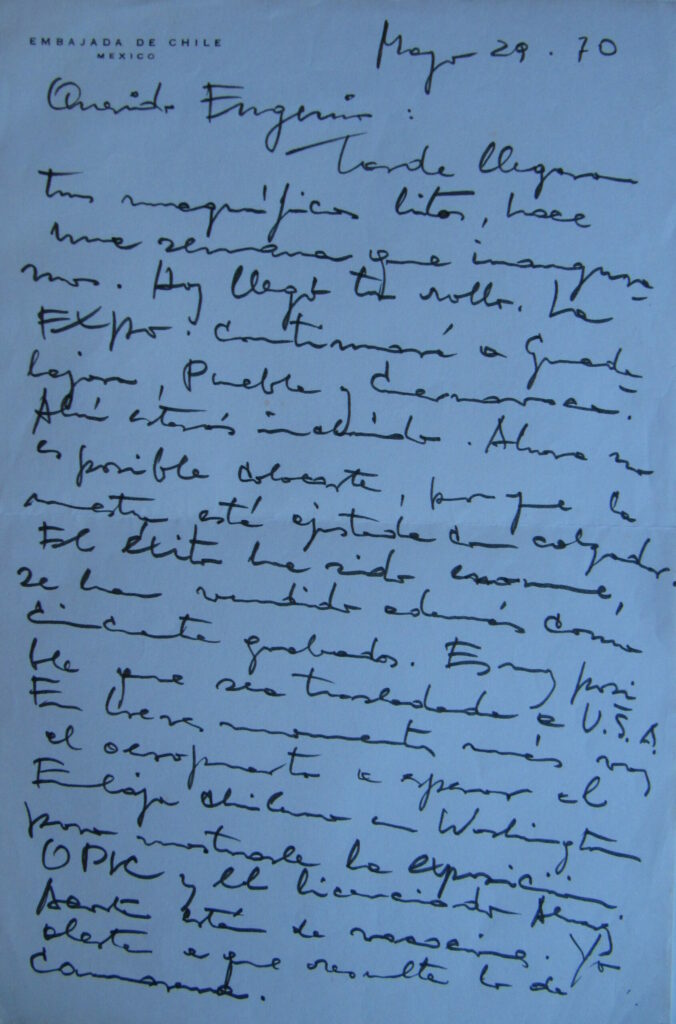 EMBAJADA DE CHILE
MEXICO
Mayo 29 . 70
Querido Eugenio :
Tarde llegaron
tus magníficas litos, hace
una semana que inaugura-
mos. Hoy llegó tu rollo. La
EXPO : continuará a Guada
lajara, Puebla y Cuernavaca.
Ahí estarás incluido. Ahora no
es posible colocarte, por que la
muestra está ajustada con colgador.
El éxito ha sido enorme,
se han vendido además como
cincuenta grabados. Es muy posi
ble que sea trasladada a U.S.A.
En breves momentos más voy
al aeropuerto a esperar al
Embaja chileno en Washington
para mostrarle la exposición.
OPIC y el licenciado
están de vacaciones. Yo
alerta a que resulte lo de
Camarena.